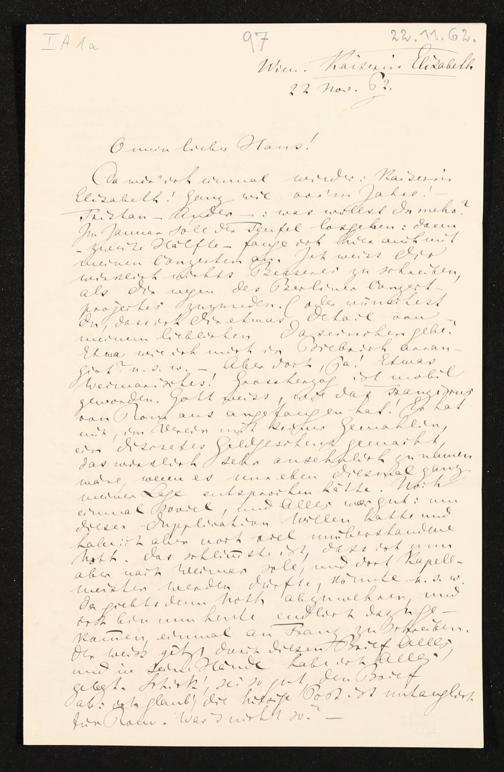 I A 1a
97
22.11.62.
Wien. Kaiserin Elisabeth
22 Nov. 62.
O mein lieber Hans!
Da wär' ich einmal wieder: Kaiserin
Elisabeth! Ganz wie vor'm Jahre! —
Tristan — Ander — : was willst Du mehr?
Im Januar soll der Teufel losgehen: dann
— zweite Hälfte — fange ich hier auch mit
meinen Concerten an. Ich weiss Dir
wirklich nichts Besseres zu schreiben,
als Dir wegen des Berliner Concert-
projectes zuzureden. Oder wünschest
Du, dass ich Dir etwas Detail von
meinem lieblichen Daseinchen gebe?
Etwa wie ich mich in Biebrich arran-
girt? u.s.w. — Aber dort, ja! Etwas
Weimarisches! Grossherzog ist mobil
geworden. Gott weiss, wie das Franz
von Rom aus angefangen hat. Er hat
mir, im Verein mit seiner Gemahlin,
ein discretes Geldgeschenk gemacht,
das wirklich sehr ansehnlich zu nennen
wäre, wenn es nur eben diesmal ganz
meiner Lage entsprochen hätte. Noch
einmal soviel, und Alles war gut: um
dieser willen hatte und
habe ich aber noch viel
Noth. Das schlimmste ist, dass ich nun
aber nach Weimar soll, und dort Kapell-
meister werden dürfte, könnte u.s.w.
Da giebts denn Noth abzuwehren, und
ich bin nun heute endlich dazu ge-
kommen, einmal an Franz zu schreiben.
Der weiss jetzt, durch diesen Brief Alles,
und in seine Hände habe ich Alles
gelegt. Schick', sei so gut, den Brief
ab: ich glaub', die hiesige Post ist untauglich
für Rom. War's nicht so? —